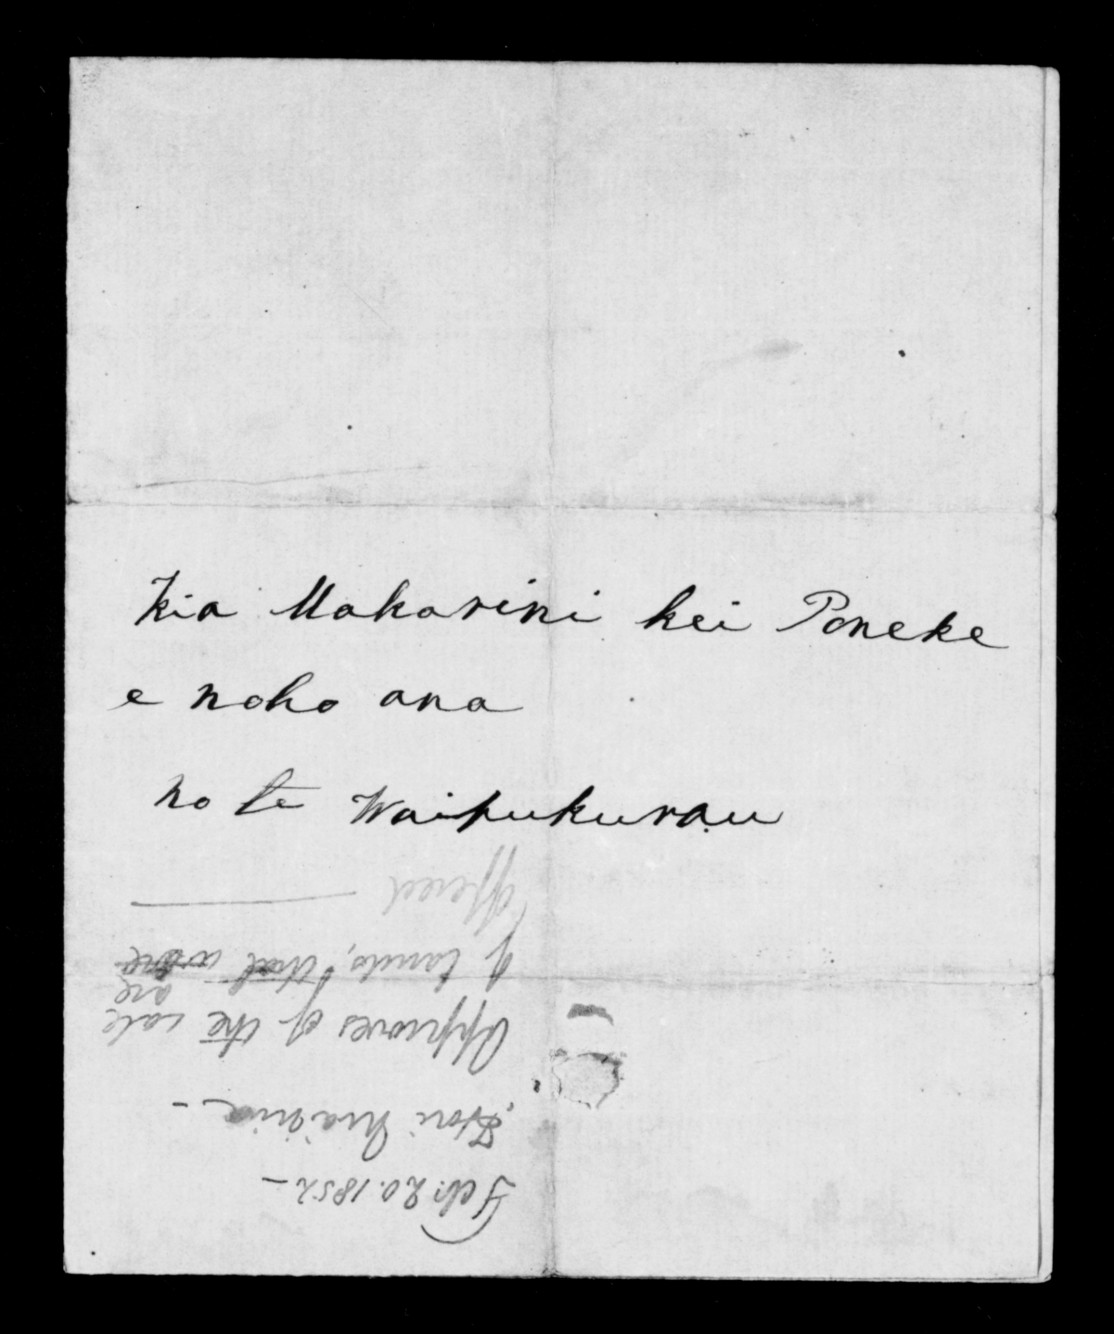 Kia Makarini kei Poneke
e noho ana
no te Waipukurau
Feb. 20. 1852 —
Hori Niania —
Approves of the sale
of lands, that are
offered